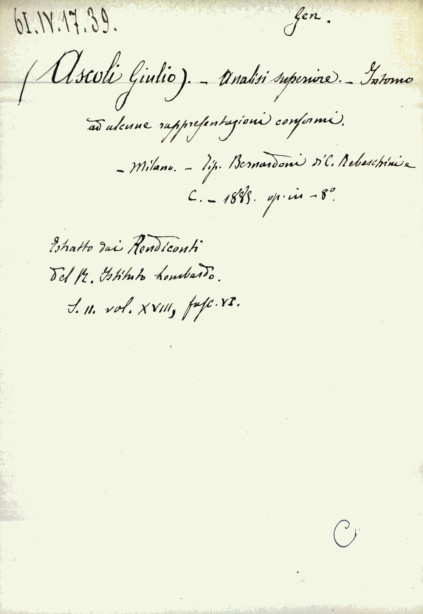 61.IV.17.39.
Gen.
(Ascoli Giulio). - Analisi superiore. - Intorno
ad alcune rappresentazioni conformi.
- Milano. - Tip. Bernardoni di C. Rebeschini e
C. - 1885. op. in - 8°.
Estratto dai Rendiconti
del R. Istituto Lombardo.
S. II. vol. XVIII, fasc. VI.
C